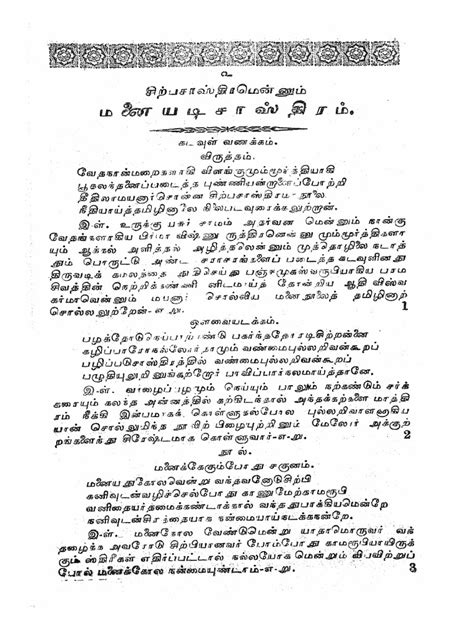 உ
சிற்பசாஸ்திரமென்னும்
மனையடிசாஸ்திரம்.
கடவுள் வணக்கம்.
விருத்தம்.
வேதநான்மறைகளாகி விளங்குமும்மூர்த்தியாகி
பூதலந்தனைப்படைத்த புண்ணியன்றனைப்போற்றி
தீதிலாமயனார்சொன்ன சிற்பசாஸ்திர நூலை
நீதியாய்த்தமிழினாலே நிலைபடவுரைக்கலுற்றேன்.
இ-ள். உருக்கு யசுர் சாமம் அதர்வண மென்னும் நான்கு
வேதங்களாகிய பிர்மா விஷ்ணு ருத்திரனென்னு மும்மூர்த்திகளா
யும் ஆக்கல் அளித்தல் அழித்தலென்னும் முத்தொழிலை நடாத்
தும் பொருட்டு அண்ட சராசரங்களைப் படைத்த கடவுளினது
திருவடிக் கமலத்தை துதிசெய்து பஞ்சமுகஸ்வரூபியாகிய பரம
சிவத்தின் நெற்றிக்கண்ணி னிடமாய்த் தோன்றிய ஆதி விஸ்வ
கர்மாவென்னும் மயனார் சொல்லிய மனைநூலைத் தமிழினாற்
சொல்லலுற்றேன்-எ-று. 1
ஔவையடக்கம்.
பழத்தோடுநெய்பாய்பண்டு பகர்ந்ததோரடிசிற்றன்னை
கழிப்பாரோகல்லோர்தாமும் வண்மைபுல்லறிவன்கூறப்
பழிப்படுசாஸ்திரத்தில் வண்மைபுல்லறிவன்கூறப்
பழுதியுலூறினுங்கற்றோர் பாவிப்பார்கலமாய்த்தானே.
இ-ள். வாழைப்பழமும் நெய்யும் பாலும் கற்கண்டும் சர்க்
கரையும் கலந்த அன்னத்தில் கற்கிடந்தால் அந்தக்கற்களை மாத்தி
ரம் நீக்கி இன்பமாகக் கொள்ளுதல்போல புல்லறிவாளனாகிய
யான் சொல்லுமிந்த நூலிற் பிழையுறினும் மேலோர் அக்குற்
றங்களைத்து சிரேஷ்டமாக கொள்ளுவார்-எ-று. 2
நூல்.
மனைக்கேகும்போது சகுனம்.
மனையதுகோலவென்று வந்தவனோடுசிற்பி
கனிவுடன்வழிச்செல்போது காணுமேற்காமரூபி
வனிதையர்தமைக்கண்டாக்கால் வந்ததுபாக்கியமென்றே
கனிவுடன்சிந்தையாக நன்மையாய்கடக்கநன்றே.
இ-ள். மனைகோல வேண்டுமென்று யாதாமொருவர் வந்
தழைக்க அவரோடு சிற்பியானவர் போம்போது காமரூபியாயிருக்
கும் ஸ்திரீகள் எதிர்ப்பட்டால் நல்லயோக மென்றும்
போல் மனைக்கோல நன்மையுண்டாம்-எ-று. 3